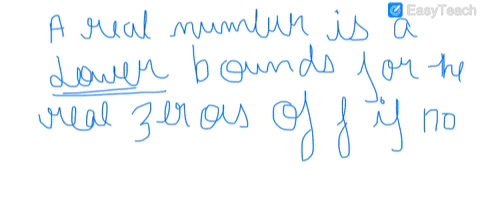 EasyTeach
A real number is a
Lower bounds for the
real zeros of f if no